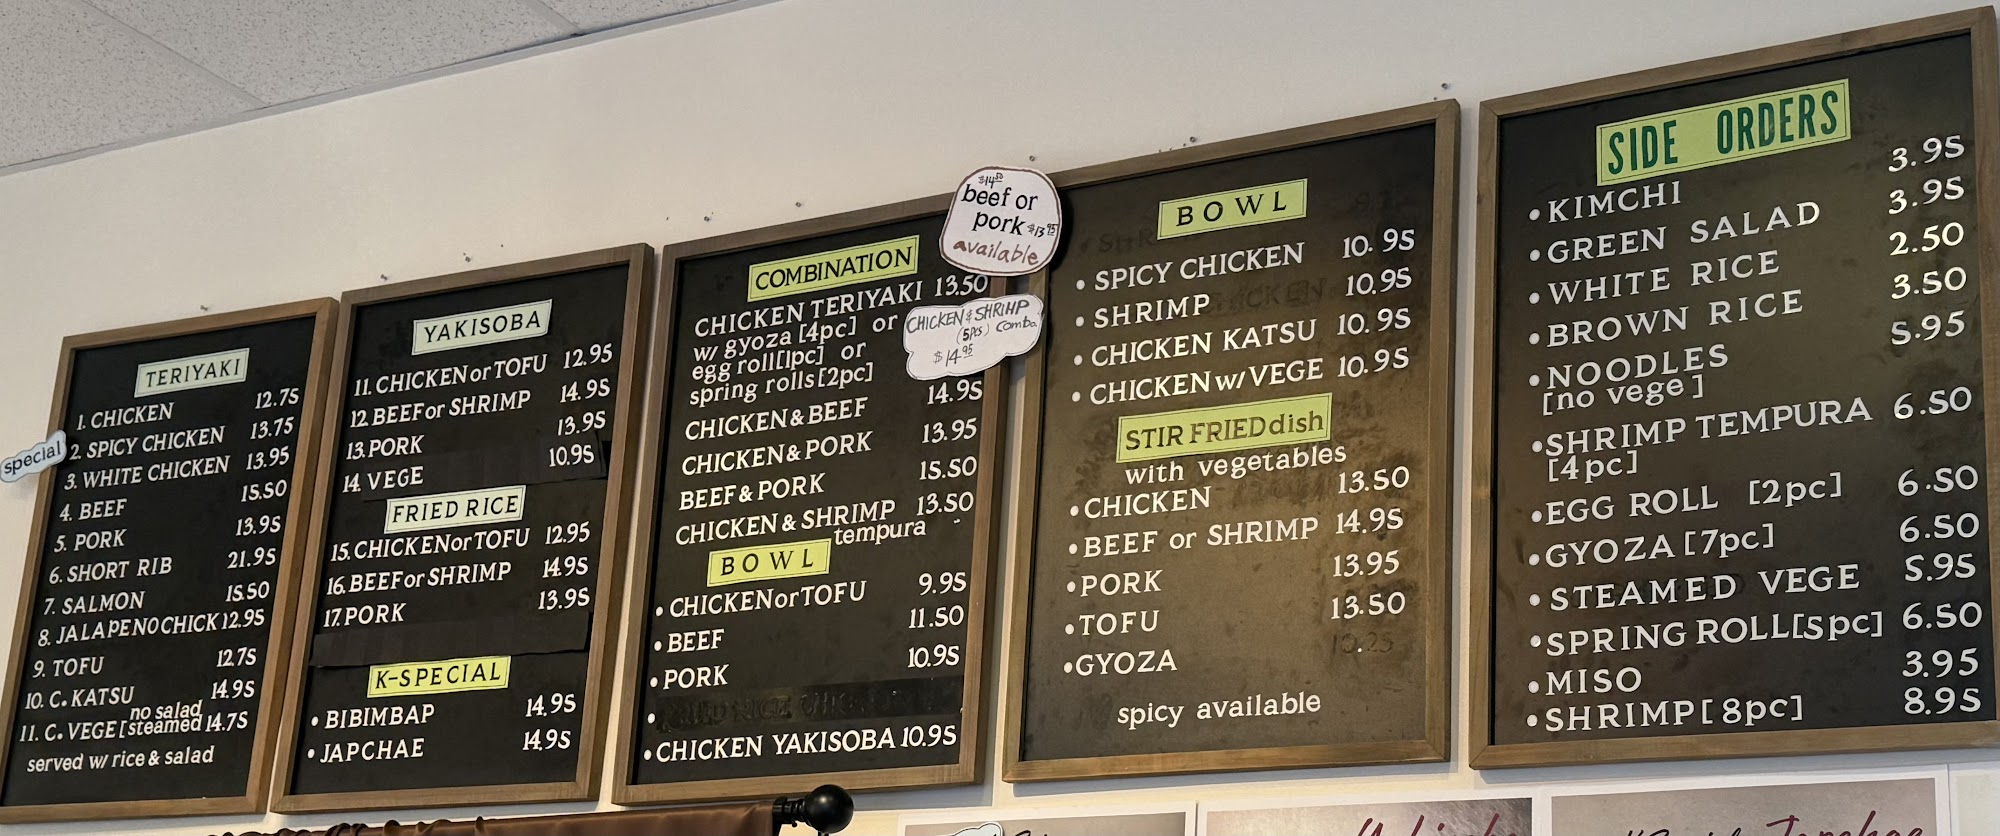 TERIYAKI
1. CHICKEN 12.75
special
2. SPICY CHICKEN 13.75
3. WHITE CHICKEN 13.95
4. BEEF 15.50
5. PORK 13.95
6. SHORT RIB 21.95
7. SALMON 15.50
8. JALAPENO CHICK 12.95
9. TOFU 12.75
10. C. KATSU 14.95
no salad
11. C. VEGE [steamed 14.75
served w/ rice & salad
YAKISOBA
11. CHICKEN or TOFU 12.95
12. BEEF or SHRIMP 14.95
13. PORK 13.95
14. VEGE 10.95
FRIED RICE
15. CHICKEN or TOFU 12.95
16. BEEF or SHRIMP 14.95
17. PORK 13.95
K-SPECIAL
• BIBIMBAP 14.95
• JAPCHAE 14.95
COMBINATION
CHICKEN TERIYAKI 13.50
w/ gyoza [4pc] or
egg roll [1pc] or
spring rolls [2pc]
CHICKEN & BEEF 14.95
CHICKEN & PORK 13.95
BEEF & PORK 15.50
CHICKEN & SHRIMP 13.50
tempura
BOWL
• CHICKEN or TOFU 9.95
• BEEF 11.50
• PORK 10.95
•
• CHICKEN YAKISOBA 10.95
$14.50
beef or
pork $13.95
available
CHICKEN & SHRIMP
(5pcs) Combo
$14.95
BOWL
• SPICY CHICKEN 10.95
• SHRIMP 10.95
• CHICKEN KATSU 10.95
• CHICKEN w/ VEGE 10.95
STIR FRIED dish
with vegetables
• CHICKEN 13.50
• BEEF or SHRIMP 14.95
• PORK 13.95
• TOFU 13.50
• GYOZA 10.25
spicy available
SIDE ORDERS
• KIMCHI 3.95
• GREEN SALAD 3.95
• WHITE RICE 2.50
• BROWN RICE 3.50
• NOODLES 5.95
[no vege]
• SHRIMP TEMPURA 6.50
[4pc]
• EGG ROLL [2pc] 6.50
• GYOZA [7pc] 6.50
• STEAMED VEGE 5.95
• SPRING ROLL [5pc] 6.50
• MISO 3.95
• SHRIMP [8pc] 8.95